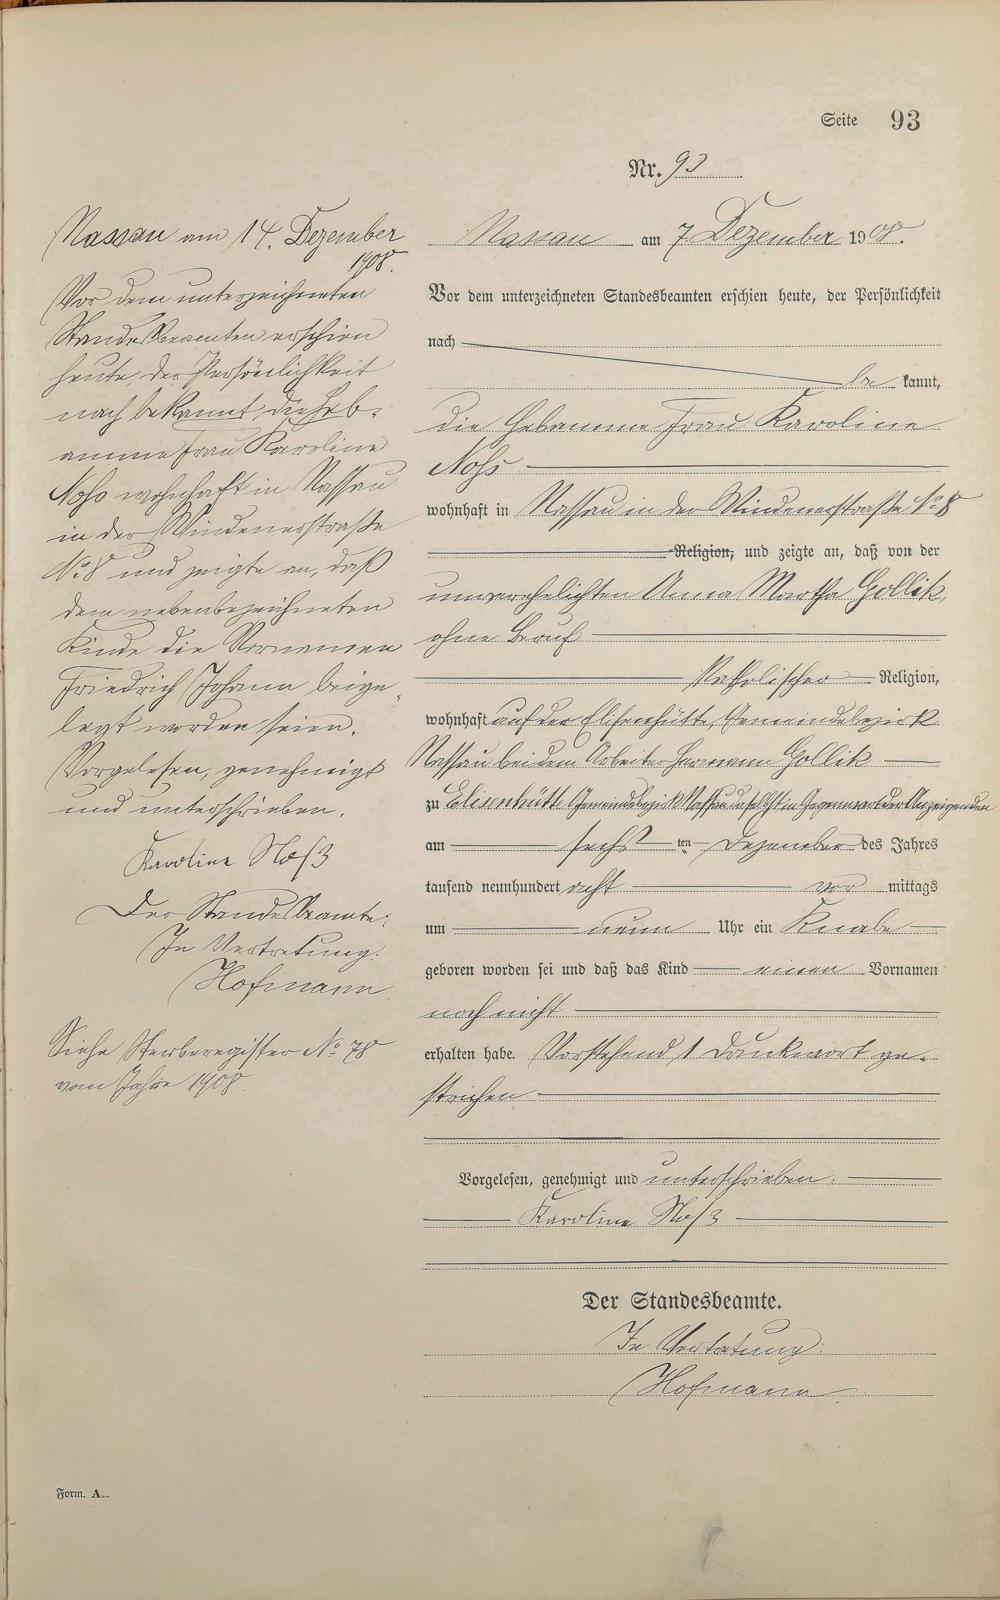 Seite 93
Nr. 93
Nassau am 14. Dezember
1908.
Vor dem unterzeichneten
Standesbeamten erschien
heute, der Persönlichkeit
nach bekannt, die Heb-
amme Frau Karoline
Nohs wohnhaft in Nassau
in der Windenerstraße
No. 8 und zeigte an, daß
dem nebenbezeichneten
Kinde die Vornamen
Friedrich Johann beige-
legt worden seien.
Vorgelesen, genehmigt
und unterschrieben.
Karoline Nohs
Der Standesbeamte:
In Vertretung:
Hofmann
Siehe Sterberegister No. 78
vom Jahre 1908
Nassau am 7 Dezember 1908.
Vor dem unterzeichneten Standesbeamten erschien heute, der Persönlichkeit
nach
be kannt,
die Hebamme Frau Karoline
Nohs
wohnhaft in Nassau in der Windenerstraße No. 8
Religion, und zeigte an, daß von der
unverehelichten Anna Martha Gollik,
ohne Beruf
katholischer Religion,
wohnhaft auf der Elisenhütte, Gemeindebezirk
Nassau bei dem Arbeiter Hermann Gollik
zu Elisenhütte Gemeindebezirk Nassau daselbst in Gegenwart der Anzeigenden
am sechsten Dezember des Jahres
tausend neunhundert acht vor mittags
um neun Uhr ein Knabe
geboren worden sei und daß das Kind einen Vornamen
noch nicht
erhalten habe. Vorstehend 1 Druckwort ge-
strichen
Vorgelesen, genehmigt und unterschrieben.
Karoline Nohs
Der Standesbeamte.
In Vertretung:
Hofmann
Form. A.